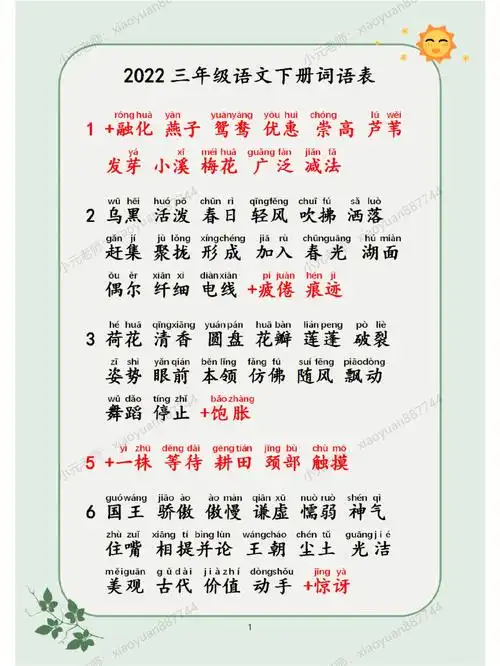 2022 三年级语文下册词语表
rónghuà yàn yuānyāng yōu huì chóng lú wěi
1 +融化 燕子 鸳鸯 优惠 崇高 芦苇
yá xī méi huā guǎng fàn jiǎn fǎ
发芽 小溪 梅花 广泛 减法
wū hēi huó pō chūn rì qīngfēng chuī fú sǎ luò
2 乌黑 活泼 春日 轻风 吹拂 洒落
gǎn jí jù lǒng xíngchéng jiā rù chūnguāng hú miàn
赶集 聚拢 形成 加入 春光 湖面
ǒu ěr xiān xì diànxiàn pí juàn hén jì
偶尔 纤细 电线 +疲倦 痕迹
hé huā qīngxiāng yuánpán huā bàn liánpeng pò liè
3 荷花 清香 圆盘 花瓣 莲蓬 破裂
zī shì yǎnqián běnlǐng fǎng fú suí fēng piāodòng
姿势 眼前 本领 仿佛 随风 飘动
wǔ dǎo tíng zhǐ bǎozhàng
舞蹈 停止 +饱胀
yì zhū děng dài gēngtián jǐng bù chù mō
5 +一株 等待 耕田 颈部 触摸
guówáng jiāo ào ào màn qiān xū nuò ruò shén qì
6 国王 骄傲 傲慢 谦虚 懦弱 神气
zhù zuǐ xiāng tí bìng lùn wángcháo chén tǔ guāng jié
住嘴 相提并论 王朝 尘土 光洁
měiguān gǔ dài jià zhí dòngshǒu jīng yà
美观 古代 价值 动手 +惊讶
1
小元老师：xiaoyuan887744